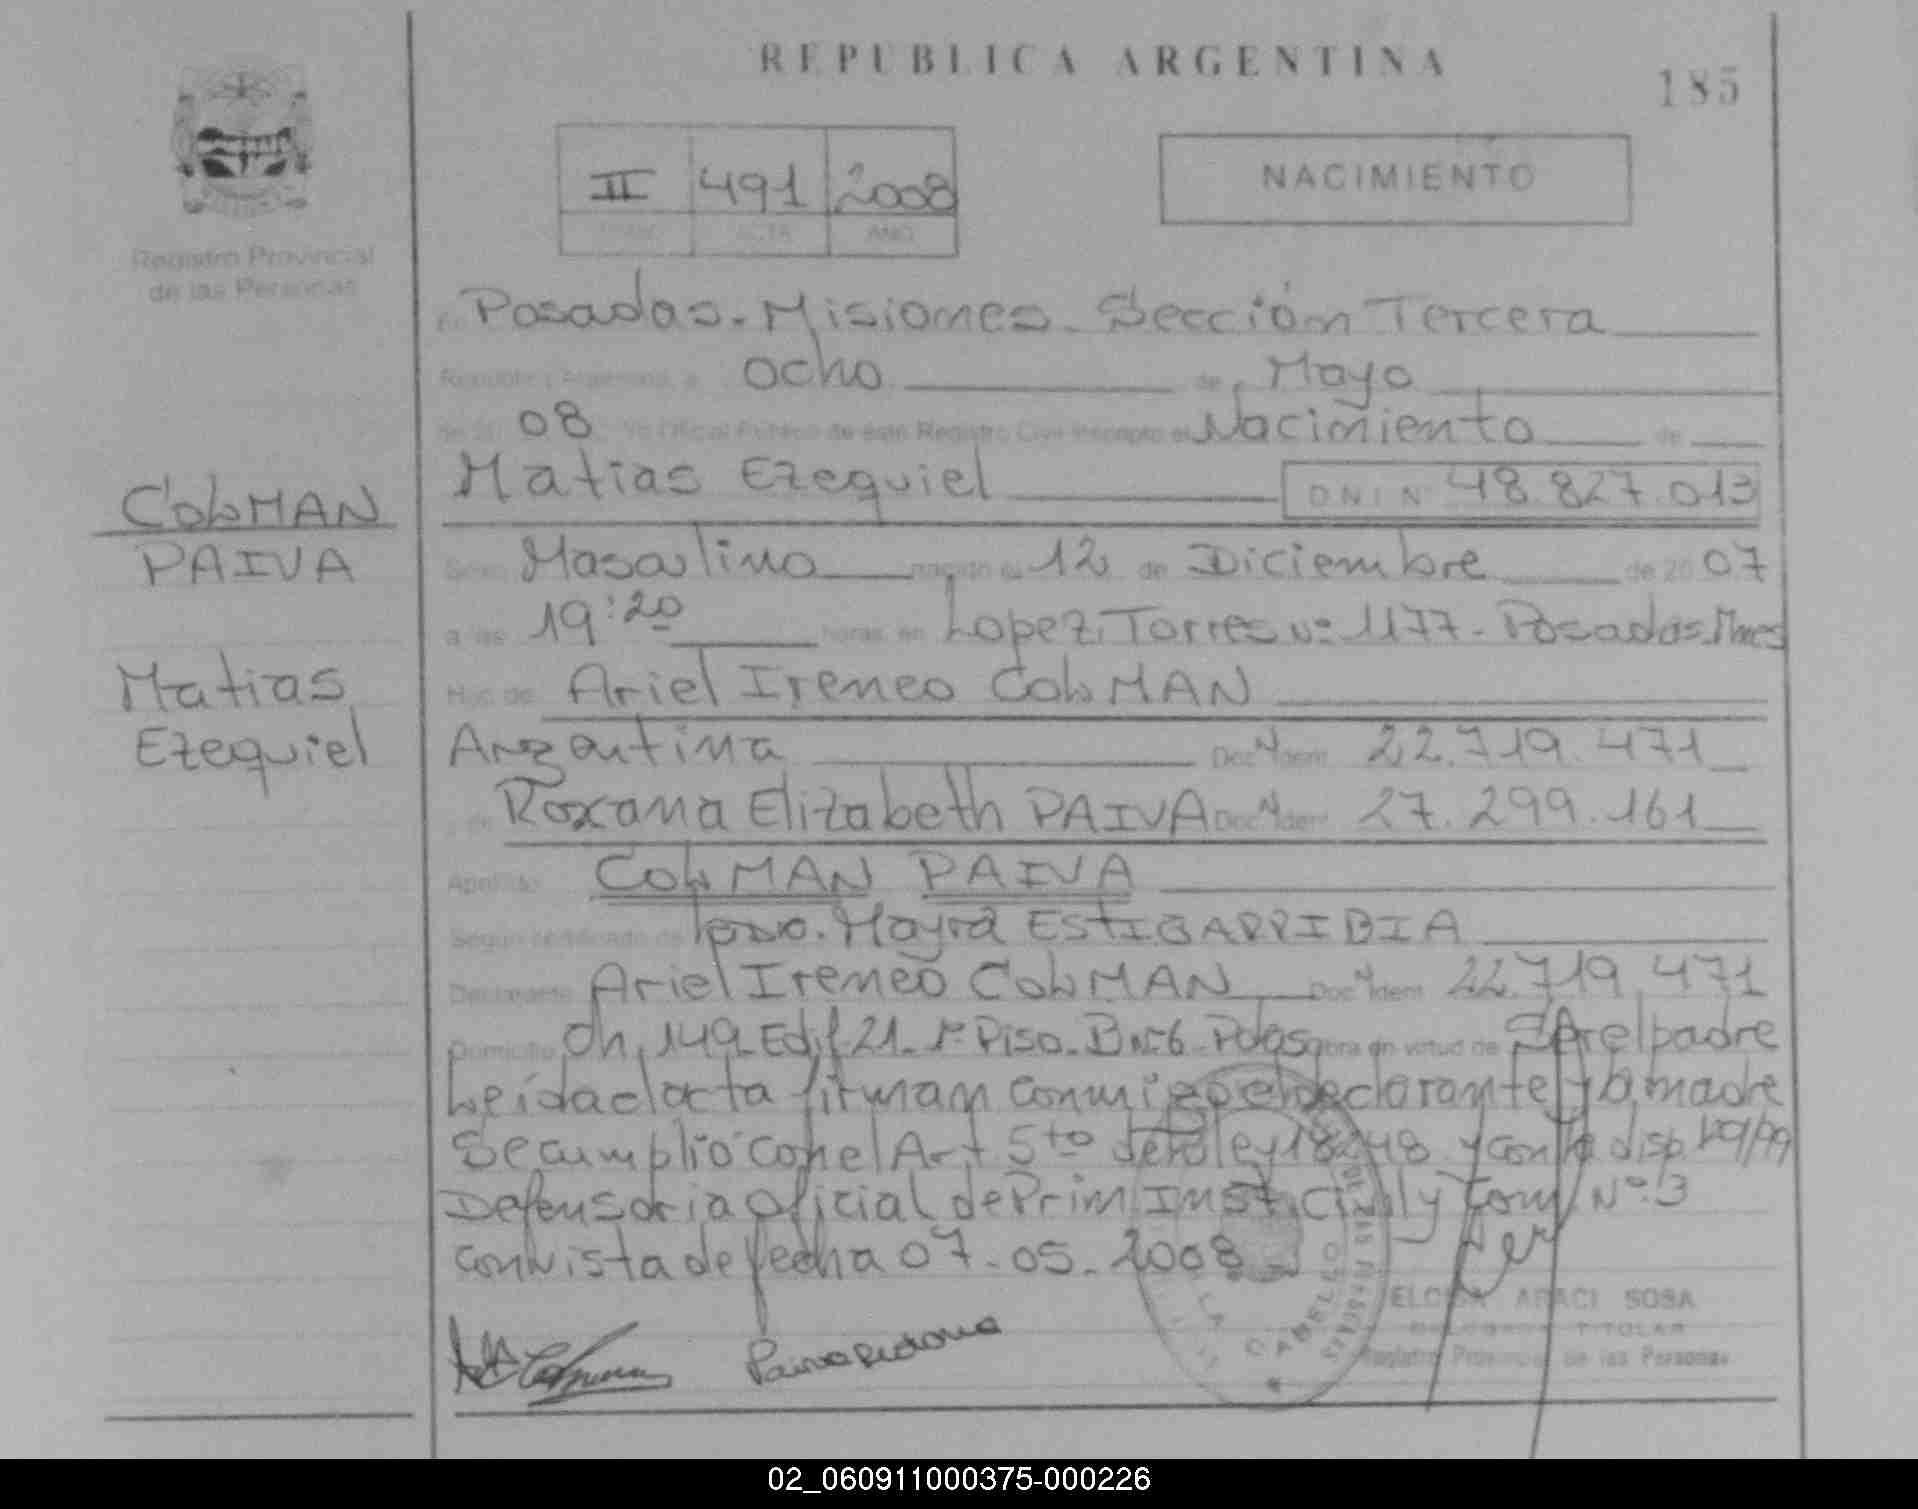 REPUBLICA ARGENTINA
185
II 491 2008
TOMO ACTA AÑO
NACIMIENTO
Registro Provincial
de las Personas
En Posadas - Misiones - Sección Tercera
República Argentina, a Ocho de Mayo
de 20 08 Yo Oficial Público de este Registro Civil inscripto el Nacimiento de
Matias Ezequiel D N I N° 48.827.013
COLMAN
PAIVA
Matias
Ezequiel
Sexo Masculino nacido el 12 de Diciembre de 20 07
a las 19:20 horas en Lopez Torres Nº 1177 - Posadas. Mnes
Hijo de Ariel Ireneo COLMAN
Argentina Doc. Ident 22.719.471
y de Roxana Elizabeth PAIVA Doc. Ident 27.299.161
Apellido COLMAN PAIVA
Según certificado de Mayra ESTIGARRIBIA
Declarante Ariel Ireneo COLMAN Doc. Ident 22.719.471
Domicilio Ch. 149 - Edif 21 - 1º Piso - Pdas obra en virtud de Ser el padre
Leída el acta firman conmigo el declarante y la madre
Se cumplió con el Art 5to de la ley 18248 y con la disp
Defensoria Oficial de Prim Inst. Civil y Com. Nº 3
con vista de fecha 07-05-2008
ELOISA ARACI SOSA
DELEGADA TITULAR
Registro Provincial de las Personas
02_060911000375-000226